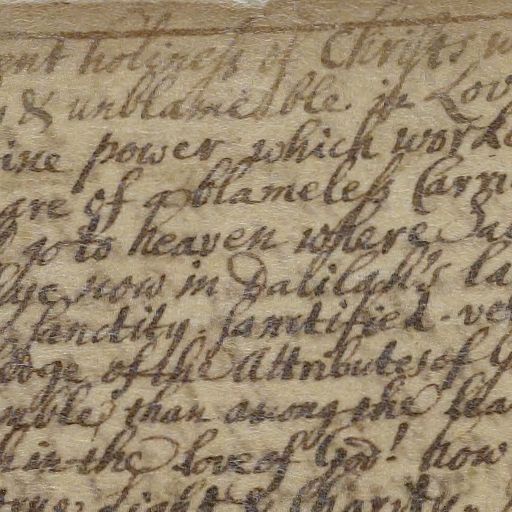 ent holiness of Christs w
& unblameable in Lov
ine power which work
are of a blameless Carri
go to heaven where
lye now in Dalilah's la
sanctity. sanctified. ve
ledge of the Attributes of G
mble than among the sta
h in the love of God! how
light & Charity.